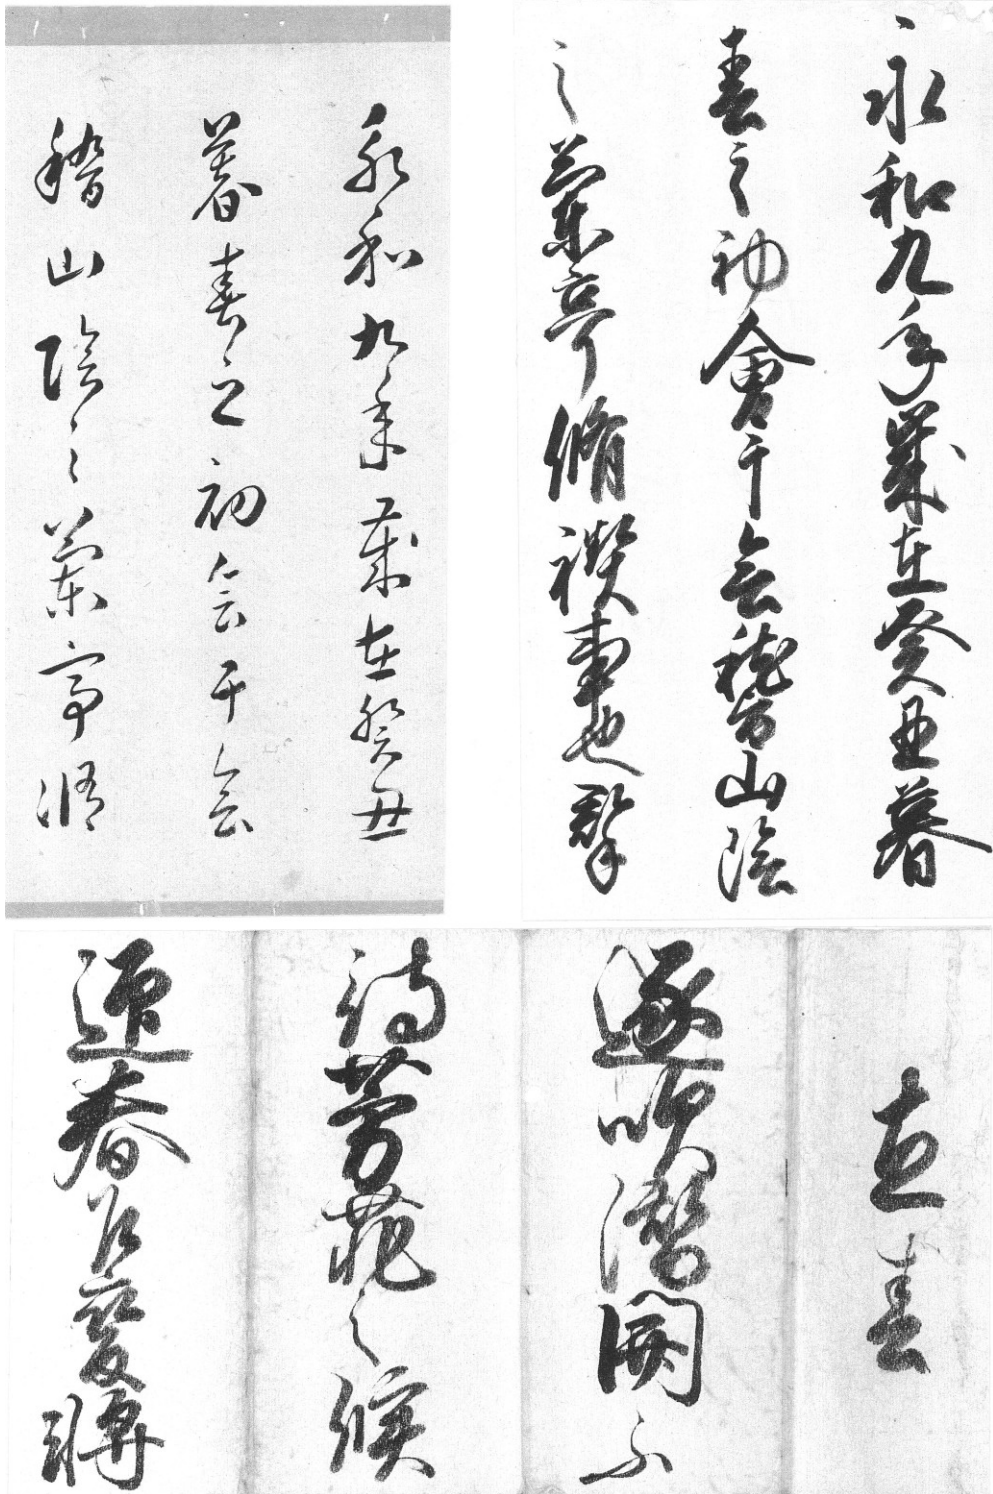 永和九年歳在癸丑暮
春之初會于会稽山陰
之蘭亭脩禊事也羣
永和九年歳在癸丑
暮春之初会于会
稽山陰之蘭亭脩
立春
逐吹潜開不
待芳菲之候
迎春乍變將